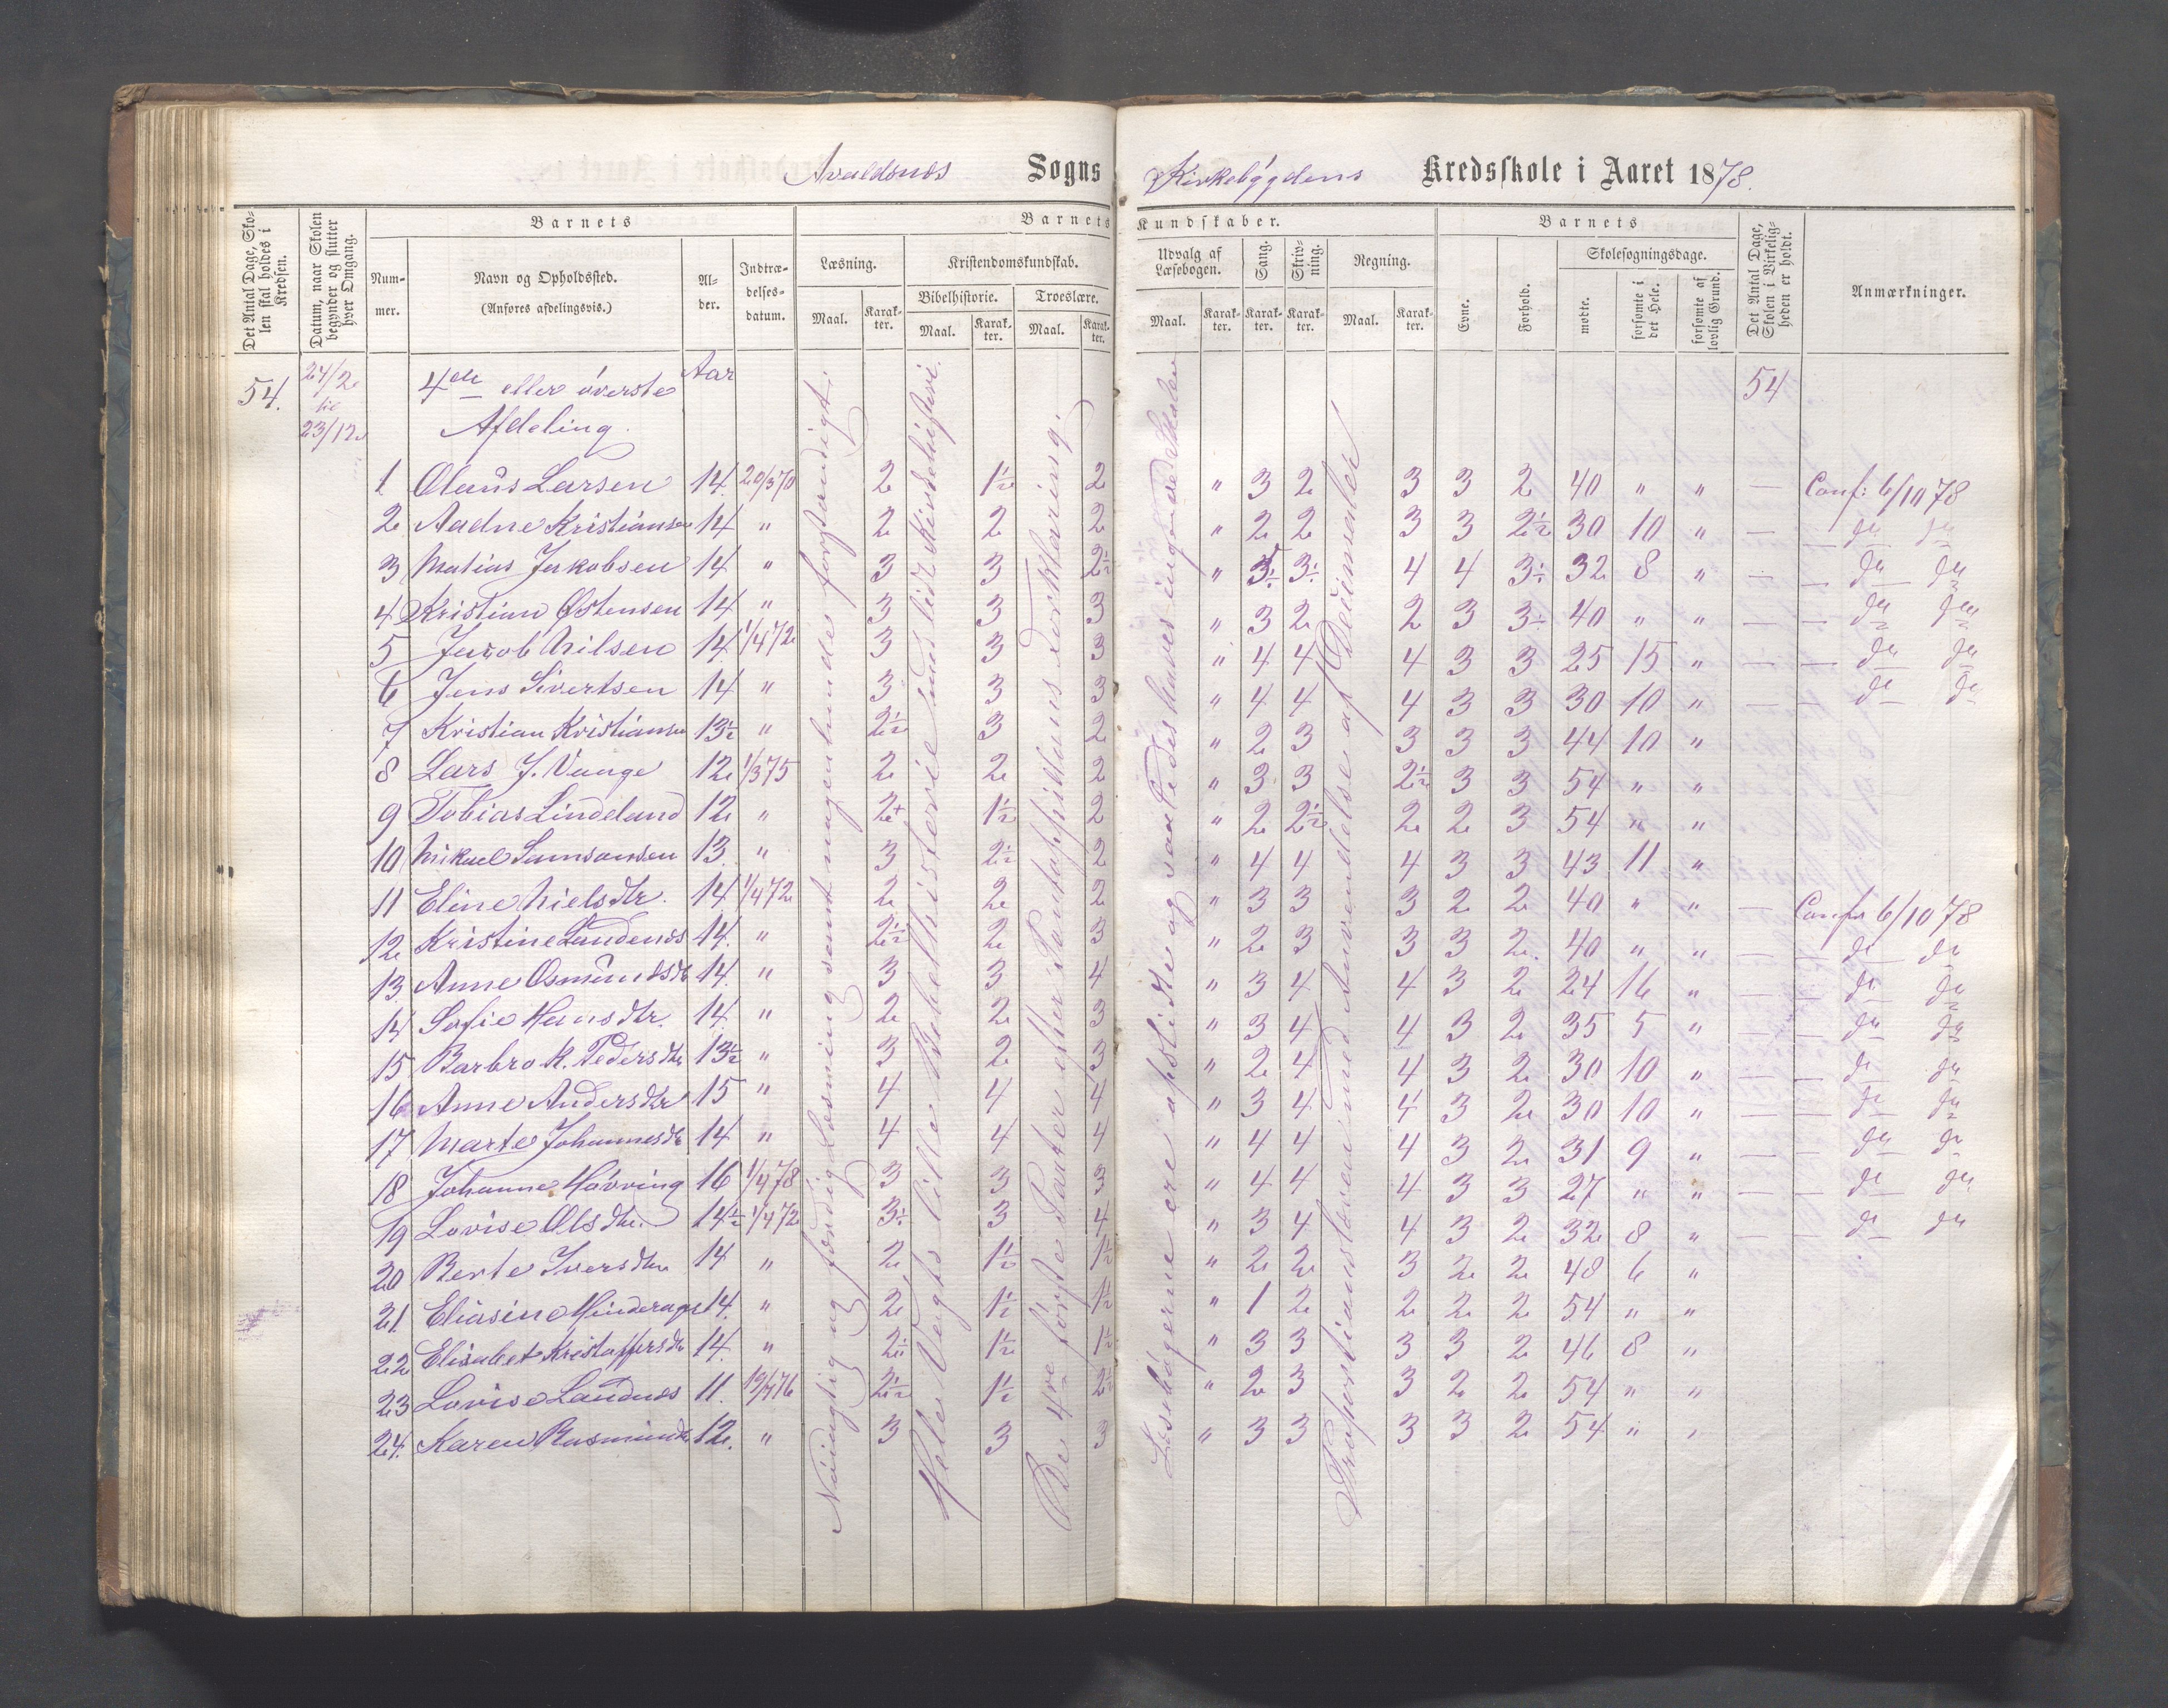 Avaldsnes Sogns Kirkebygdens Kredsskole i Aaret 1878.
Det Antal Dage, Skolen skal holdes i Kredsen.
Datum, naar Skolen begynder og slutter hver Omgang.
Barnets
Nummer.
Navn og Opholdssted.
(Anføres afdelingsvis.)
Alder.
Indtrædelsesdatum.
Barnets Kundskaber.
Læsning.
Maal.
Karakter.
Kristendomskundskab.
Bibelhistorie.
Maal.
Karakter.
Troeslære.
Maal.
Karakter.
Udvalg af Læsebogen.
Maal.
Karakter.
Sang.
Karakter.
Skrivning.
Karakter.
Regning.
Maal.
Karakter.
Barnets
Evne.
Forhold.
Skolesøgningsdage.
mødte.
forsømte i det Hele.
forsømte af lovlig Grund.
Det Antal Dage, Skolen i Virkeligheden er holdt.
Anmærkninger.
54. 24/2 til 23/12 4de eller øverste Afdeling. Aar 54
1 Olaus Larsen 14. 20/3 70 2 1½ 2 " 3 2 3 3 2 40 " " — Conf: 6/10 78
2 Aadne Kristiansen 14 " 2 2 2 " 2 2 3 3 2½ 30 10 " — — do do
3 Matias Jakobsen 14 " 3 3 2½ " 3÷ 3÷ 4 4 3÷ 32 8 " — — do do
4 Kristian Østensen 14 " 3 3 3 " 3 2 2 3 3÷ 40 " " — — do do
5 Jacob Nilsen 14. 1/4 72 3 3 3 " 4 4 4 3 3 25 15 " — — do do
6 Jens Sivertsen 14 " 3 3 3 " 4 4 4 3 3 30 10 " — — do do
7 Kristian Kristiansen 13½ " 2½ 3 2 " 2 3 3 3 3 44 10 "
8 Lars J. Vange 12 1/3 75 2 2 2 " 3 3 2½ 3 3 54 " "
9 Tobias Lindeland 12 " 2+ 1½ 2 " 2 2½ 2 2 3 54 " "
10 Mikael Samsonsen 13. " 3 2½ 2 " 4 4 4 3 3 43 11 "
11 Eline Nielsdtr. 14 1/4 72 2 2 2 " 3 3 3 2 2 40 " " — Conf 6/10 78
12 Kristine Landenes 14. " 2½ 2 3 " 2 3 3 3 2. 40 " " — — do do
13. Anne Osmundsdtr 14. " 3 3 4 " 3 4 4 3 2 24 16 " — — do do
14 Sofie Hansdtr. 14. " 2 2 3 " 3 4 4 3 2 35 5 " — — do do
15 Barbro K. Pedersdtr 13½ " 3 2 3 " 2 4 4 3 2 30 10 " — — do do
16 Anne Andersdtr 15 " 4 4 4 " 3 4 4 3 2 30 10 " — — do do
17 Marte Johannesdtr 14 " 4 4 4 " 4 4 4 3 2 31 9 " — — do do
18 Johanne Høvring 16 1/4 78 3 3 3 " 4 4 4 3 3 27 " " — — do do
19 Lovise Olsdtr. 14½ 1/4 72 3÷ 3 4 " 3 4 4 3 2 32 8 " — — do do
20 Berte Iversdtr 14 " 2 1½ 1½ " 2 2 3 2 2 48 6 "
21. Eliasine Hinderager 14. " 2 1½ 1½ " 1 2 2 2 2 54 " "
22 Elisabet Kristoffersdtr 14. " 2÷ 1½ 1½ " 3 3 3 3 2 46 8 "
23 Lovise Landnes 11. 2½ 1½ 2½ " 2 3 3 2 2 54 " "
24. Karen Rasmusdtr 12. " 3 3 3 " 3 3 3 3 2 54 " "
Nøiagtig og færdig Læsning samt nogenlunde forstandigt.
Hele Vogts lille Bibelhistorie samt lidt Kirkehistorie.
De 4re første Parter efter Pontoppidans Forklaring.
Læsebøgerne ere afslidte og saaledes haves ingen ved Skolen
Proportionslæren med Anvendelse af Decimaler